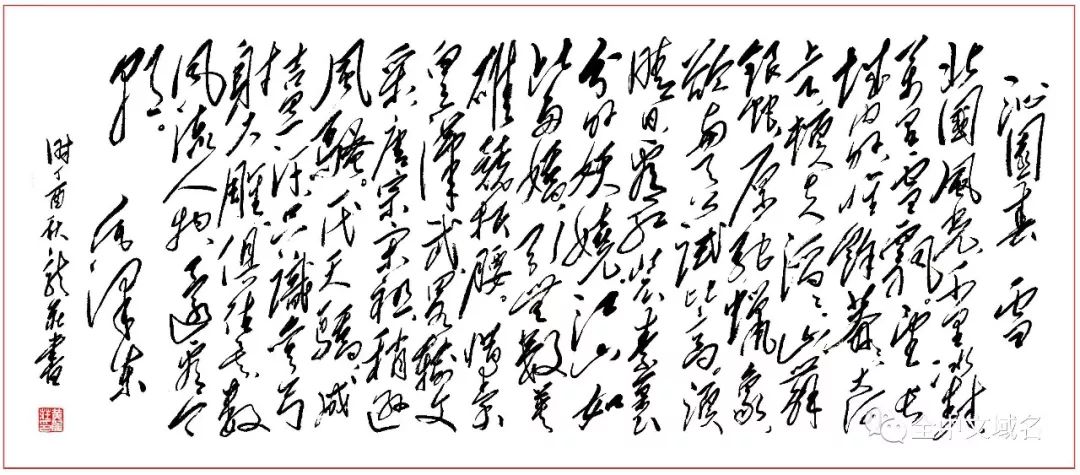 沁園春 雪
北國風光千里冰封
萬里雪飄。望長
城内外惟餘莽莽大河
上下頓失滔滔山舞
銀蛇原馳蠟象
欲與天公試比高。須
晴日看紅裝素裹
分外妖嬈。江山如
此多嬌引無數英
雄競折腰。惜秦
皇漢武畧輸文
采唐宗宋祖稍遜
風騷。一代天驕成
吉思汗只識彎弓
射大雕俱往矣數
風流人物還看今
朝。
毛澤東
時丁酉秋龍莊書
全中文域名